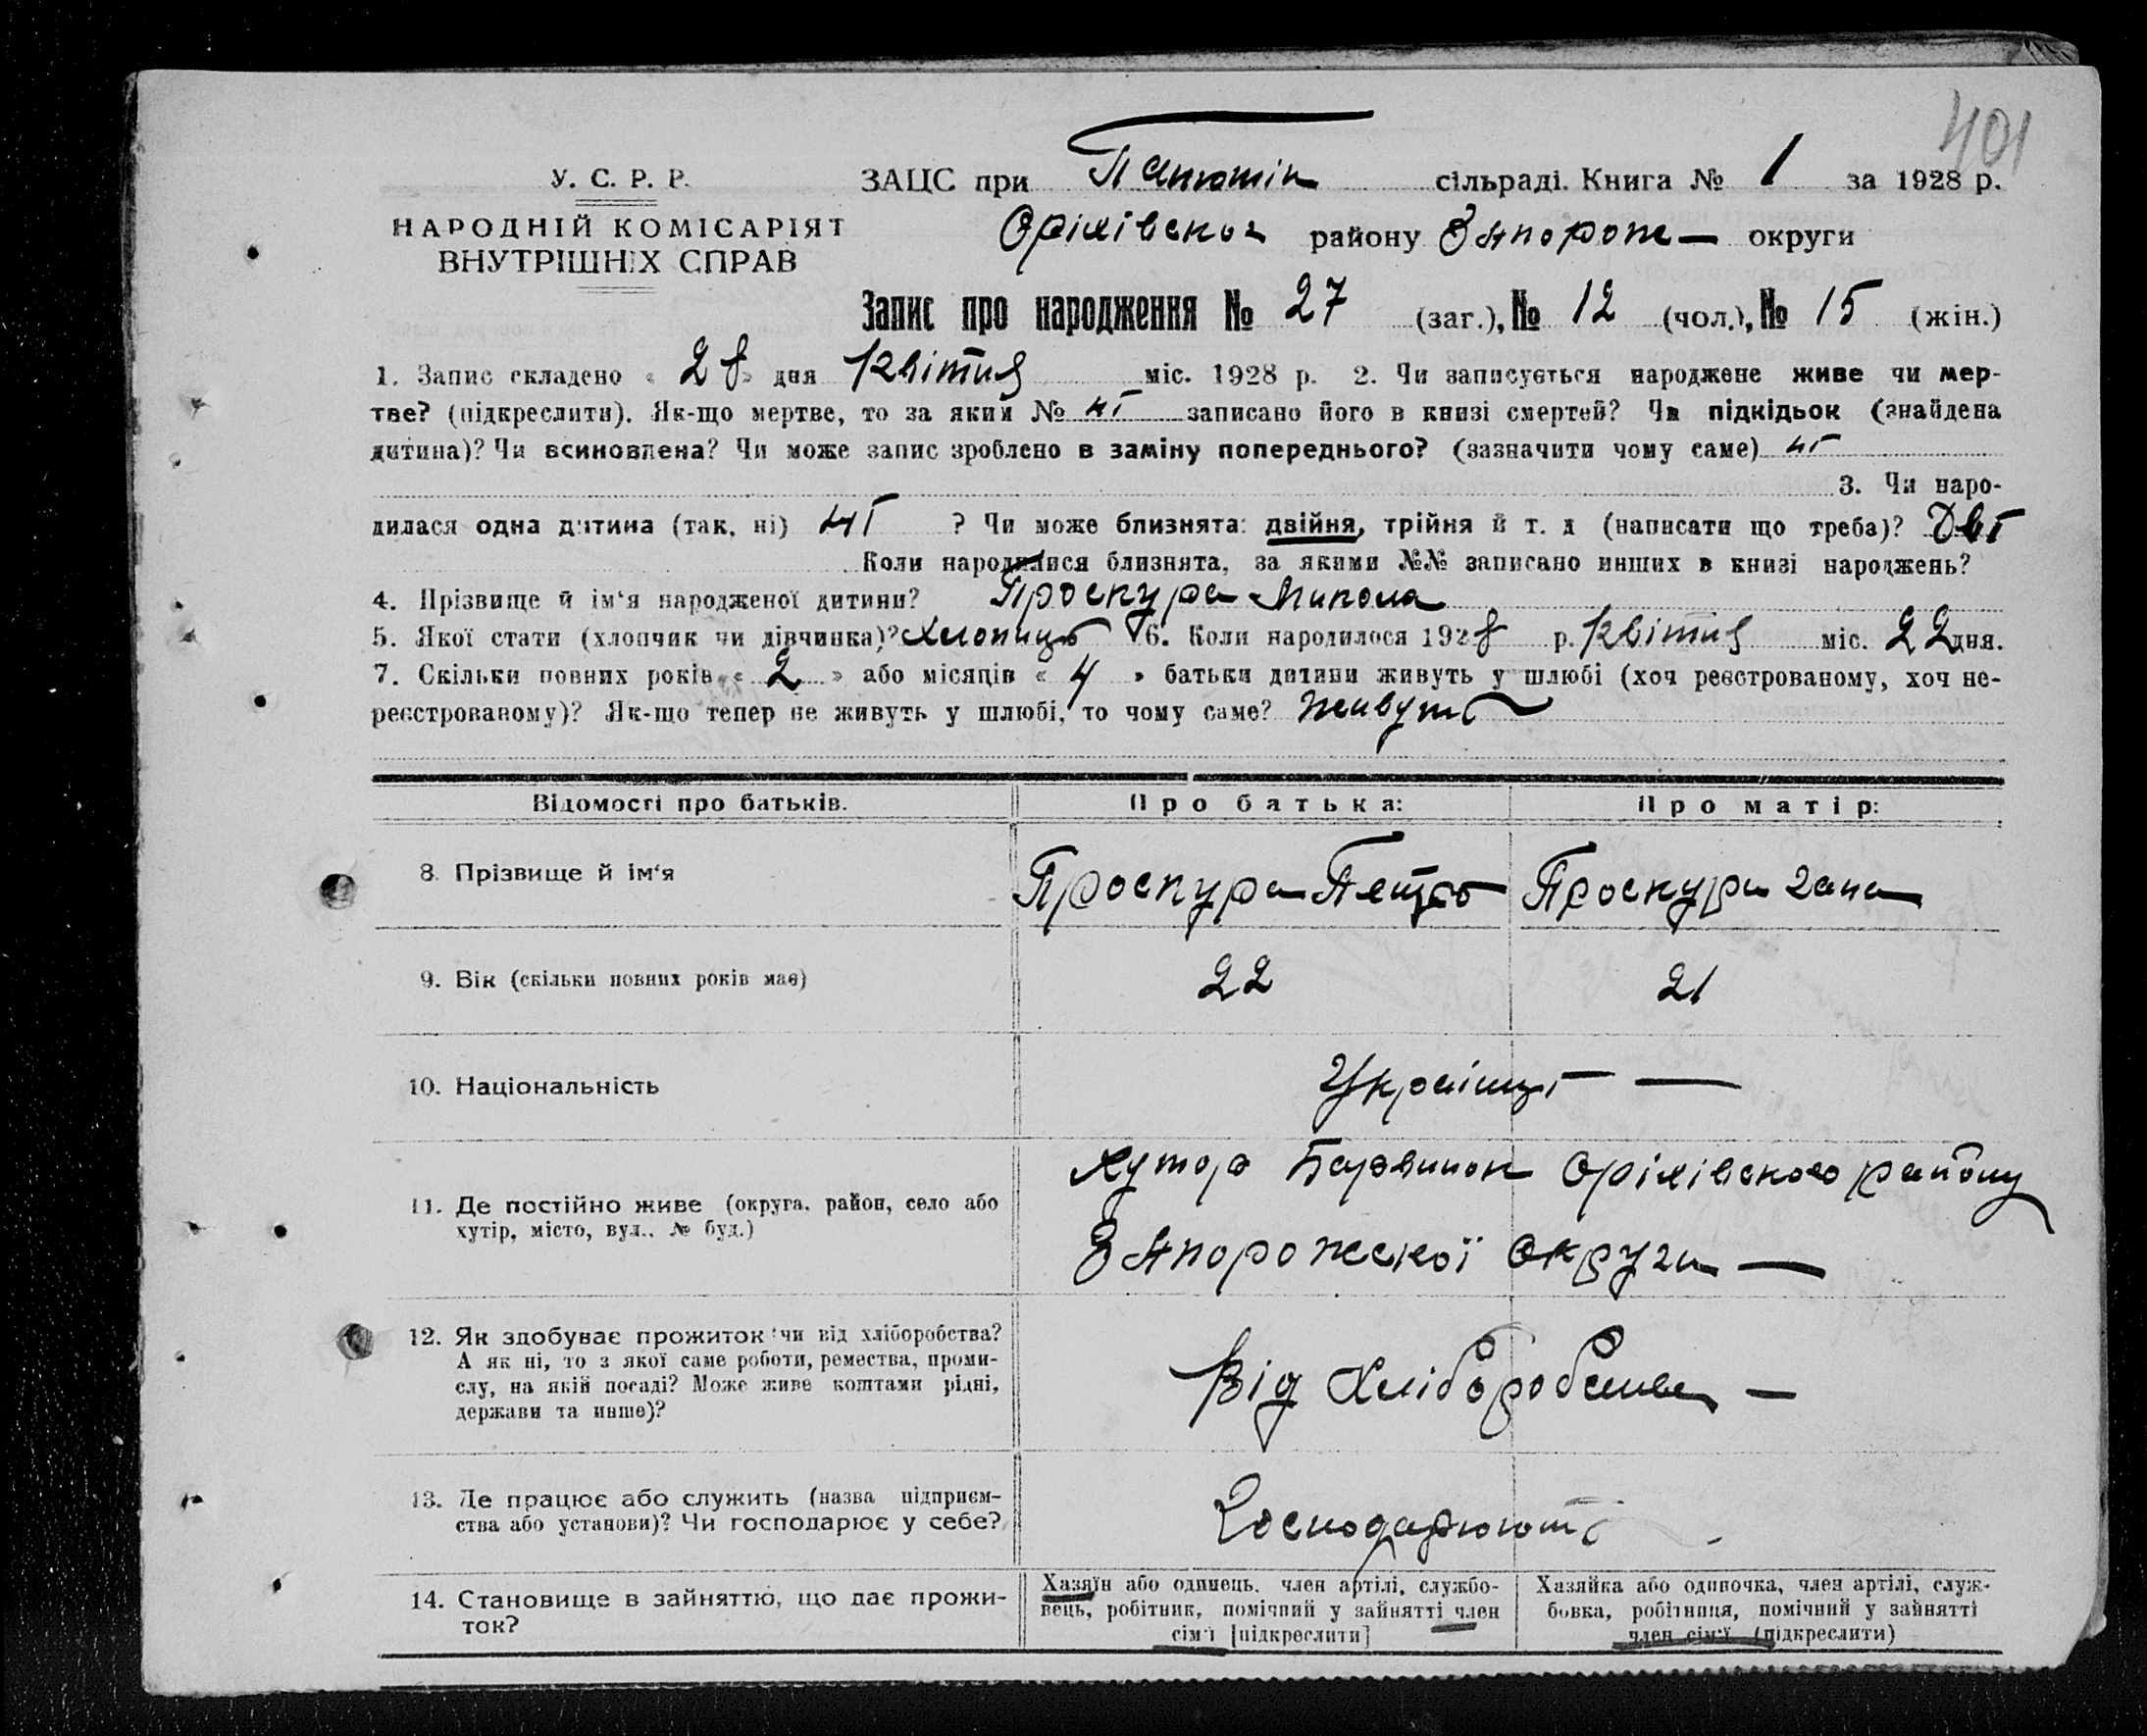 401
У. С. Р. Р.
НАРОДНІЙ КОМІСАРІЯТ
ВНУТРІШНІХ СПРАВ
ЗАЦС при сільраді. Книга № 1 за 1928 р.
Оріхівськог району Запорож— округи
Запис про народження № 27 (заг.), № 12 (чол.), № 15 (жін.)
1. Запис складено « 28 » дня Квітня міс. 1928 р. 2. Чи записується народжене живе чи мер-
тве? (підкреслити). Як-що мертве, то за яким № ні записано його в книзі смертей? Чи підкідьок (знайдена
дитина)? Чи всиновлена? Чи може запис зроблено в заміну попереднього? (зазначити чому саме) ні
3. Чи наро-
дилася одна дитина (так, ні) ні ? Чи може близнята: двійня, трійня й т. д (написати що треба)? Дві
Коли народилися близнята, за якими №№ записано инших в книзі народжень?
4. Прізвище й ім‘я народженої дитини? Проскура Микола
5. Якої стати (хлопчик чи дівчинка)? Хлопиць 6. Коли народилося 1928 р. Квітня міс. 22 дня.
7. Скільки повних років « 2 » або місяців « 4 » батьки дитини живуть у шлюбі (хоч реєстрованому, хоч не-
реєстрованому)? Як-що тепер не живуть у шлюбі, то чому саме? живуть
Відомості про батьків. Про батька: Про матір:
8. Прізвище й ім‘я Проскура Петро Проскура Гана
9. Вік (скільки повних років має) 22 21
10. Національність Українці —
11. Де постійно живе (округа, район, село або
хутір, місто, вул., № буд.)
Хутор Барвинок Оріхівского району
Запорожскої округи —
12. Як здобуває прожиток чи від хліборобства?
А як ні, то з якої саме роботи, ремества, проми-
слу, на якій посаді? Може живе коштами рідні,
держави та инше)?
Від Хліборобства —
13. Де працює або служить (назва підприєм-
ства або установи)? Чи господарює у себе?
Господарюють
14. Становище в зайняттю, що дає прожи-
ток?
Хазяїн або одинець, член артілі, службо-
вець, робітник, помічний у зайнятті член
сім‘ї [підкреслити]
Хазяйка або одиночка, член артілі, служ-
бовка, робітниця, помічний у зайнятті
член сім‘ї (підкреслити)